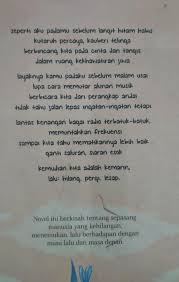 seperti aku padamu sebelum langit hitam habis
kutaruh percaya, kauberi telinga
berbincang kita pada cinta dan tangis
dalam ruang kekhawatiran yang
layaknya kamu padaku sebelum malam usai
lupa cara memutar alunan musik
berbicara kita dari perangkap andai
tidak tahu jalan lepas ingatan-ingatan tetapi
lantas kenangan bagai radio terbatuk-batuk,
memuntahkan frekuensi
sampai kita tahu mematikannya lebih baik
ganti saluran, saran esok
kemudian kita adalah kemarin,
lalu: hilang, pergi, lesap.
Novel ini berkisah tentang sepasang
manusia yang kehilangan,
menemukan, lalu berhadapan dengan
masa lalu dan masa depan.